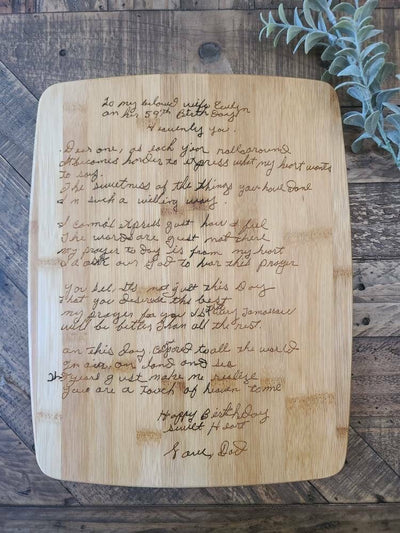 To my beloved wife Evelyn
on her 59th Birth Day
Heavenly you.
Dear one, as each year rolls around
It becomes harder to express what my heart wants
to say.
The sweetness of the things you have done
In such a willing way.
I cannot express just how I feel
The words are just not there
my prayer to Day Is from my heart
I'd ask our God to hear this prayer
You see, Its not just this Day
That you deserve the best
my prayer for you Is Every Tomorrow
will be better Than all the rest.
on this Day
to all the world
on air, on land and sea
years Just make me realize
You are a Touch of heaven to me
Happy Birthday
sweet Heart
Love, Dad